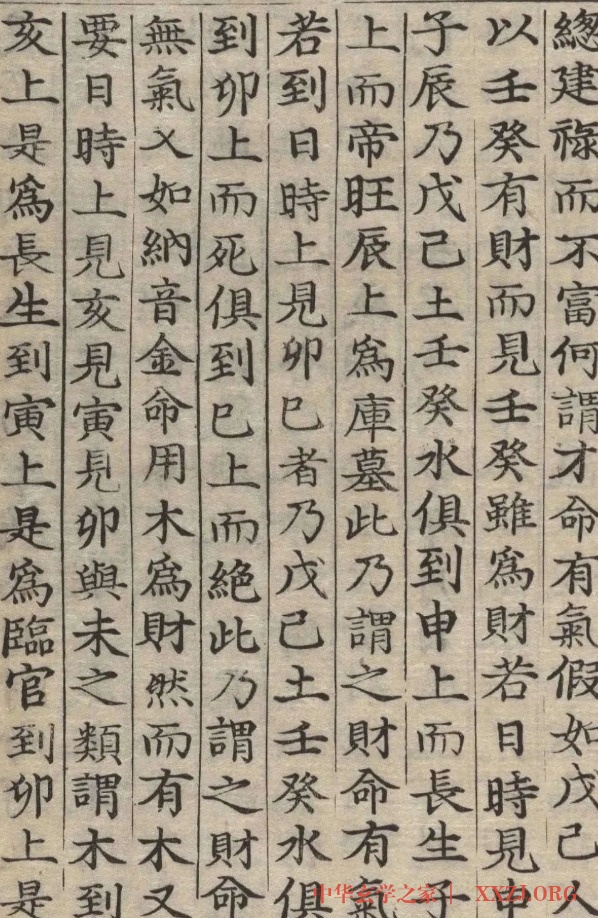 總建祿而不富何謂才命有氣假如戊己人
以壬癸有財而見壬癸雖爲財若日時見申
子辰乃戊己土壬癸水俱到申上而長生子
上而帝旺辰上爲庫墓此乃謂之財命有氣
若到日時上見卯巳者乃戊己土壬癸水俱
到卯上而死俱到巳上而絕此乃謂之財命
無氣又如納音金命用木爲財然而有木又
要日時上見亥見寅見卯與未之類謂木到
亥上是爲長生到寅上是爲臨官到卯上是
中华玄学之家 | XXZJ.ORG